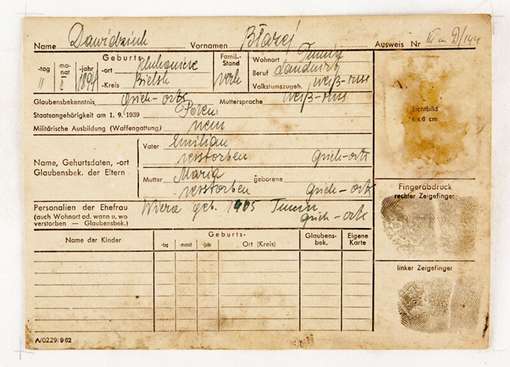 Name Dawidziuk Vornamen Błażej Ausweis Nr
-tag mo-nat -jahr Geburts- -ort Famil. Stand Wohnort
11 2 -Kreis Bielsk verh Beruf Landwirt
Volkstumszugeh. weiß-russ
Glaubensbekenntnis Griech-orth Muttersprache weiß-russ
Staatsangehörigkeit am 1. 9. 1939 Polen
Militärische Ausbildung (Waffengattung) nein
Name, Gehurtsdaten, -ort
Glaubensbek. der Eltern
Vater Emilian
verstorben Griech-orth
Mutter Maria geborene
verstorben Griech-orth
Personalien der Ehefrau
(auch Wohnort od. wann u. wo
verstorben — Glaubensbek.)
Wiera geb. 1905
Griech-orth
Name der Kinder Geburts- -tag -monat -jahr Ort (Kreis) Glaubens-bek. Eigene Karte
Lichtbild
4 x 6 cm
Fingerabdruck
rechter Zeigefinger
linker Zeigefinger
A/0229/9 62